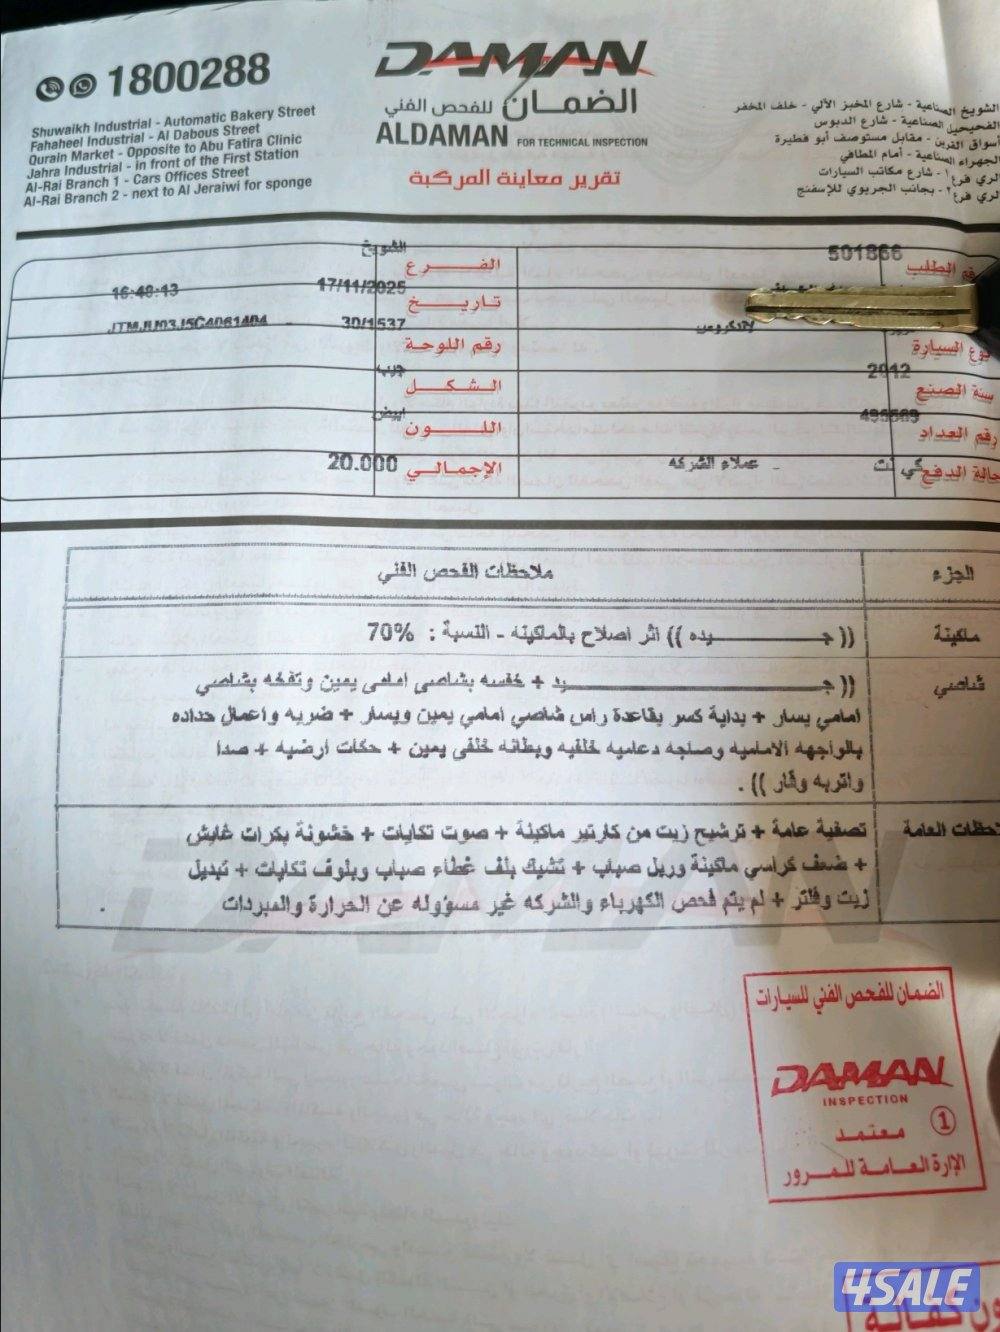 1800288
Shuwaikh Industrial - Automatic Bakery Street
Fahaheel Industrial - Al Dabous Street
Qurain Market - Opposite to Abu Fatira Clinic
Jahra Industrial - in front of the First Station
Al-Rai Branch 1 - Cars Offices Street
Al-Rai Branch 2 - next to Al Jeraiwi for sponge
DAMAN
الضمان للفحص الفني
ALDAMAN FOR TECHNICAL INSPECTION
تقرير معاينة المركبة
الشويخ الصناعية - شارع المخبز الآلي - خلف المخفر
الفحيحيل الصناعية - شارع الدبوس
أسواق القرين - مقابل مستوصف أبو فطيرة
الجهراء الصناعية - أمام المطافي
الري فرع ١ - شارع مكاتب السيارات
الري فرع ٢ - بجانب الجريوي للإسفنج
رقم الطلب 501866
الفرع الشويخ
تاريخ 17/11/2025 16:48:43
نوع السيارة لاندكروسر
رقم اللوحة 30/1537 - JTMJU03J5C4061404
سنة الصنع 2012
الشكل جيب
رقم العداد 495569
اللون ابيض
حالة الدفع كي نت - عملاء الشركه
الإجمالي 20.000
الجزء ملاحظات الفحص الفني
ماكينة (( جـــــيده )) اثر اصلاح بالماكينه - النسبة : 70%
شاصي (( جـــــيد + خفسه بشاصى امامى يمين ونفخه بشاصي
امامي يسار + بداية كسر بقاعدة راس شاصي امامي يمين ويسار + ضربه واعمال حداده
بالواجهه الاماميه وصاجه دعاميه خلفيه وبطانه خلفي يمين + حكات ارضيه + صدا
واتربه وقار )) .
حظات العامة تصفية عامة + ترشيح زيت من كارتير ماكينة + صوت تكايات + خشونة بكرات غايش
+ ضعف كراسي ماكينة وربل صباب + تشيك بلف غطاء صباب وبلوف تكايات + تبديل
زيت وفلتر + لم يتم فحص الكهرباء والشركه غير مسؤوله عن الحرارة والمبردات .
الضمان للفحص الفني للسيارات
DAMAN
INSPECTION
معتمد 1
الإرة العامة للمرور
4SALE
ون كفالة